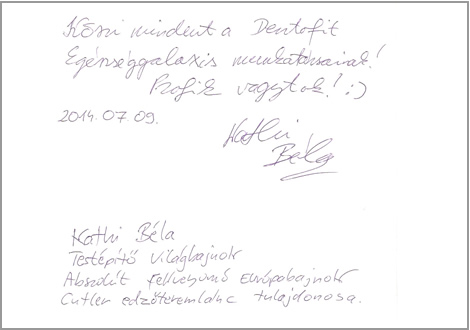 Köszi mindent a Dentofit
Egészséggalaxis munkatársainak!
Profik vagytok! :)
2014.07.09.
Kathi
Béla
Kathi Béla
Testépítő Világbajnok
Abszolút fekvenyomó Európabajnok
Cutler edzőteremlánc tulajdonosa.